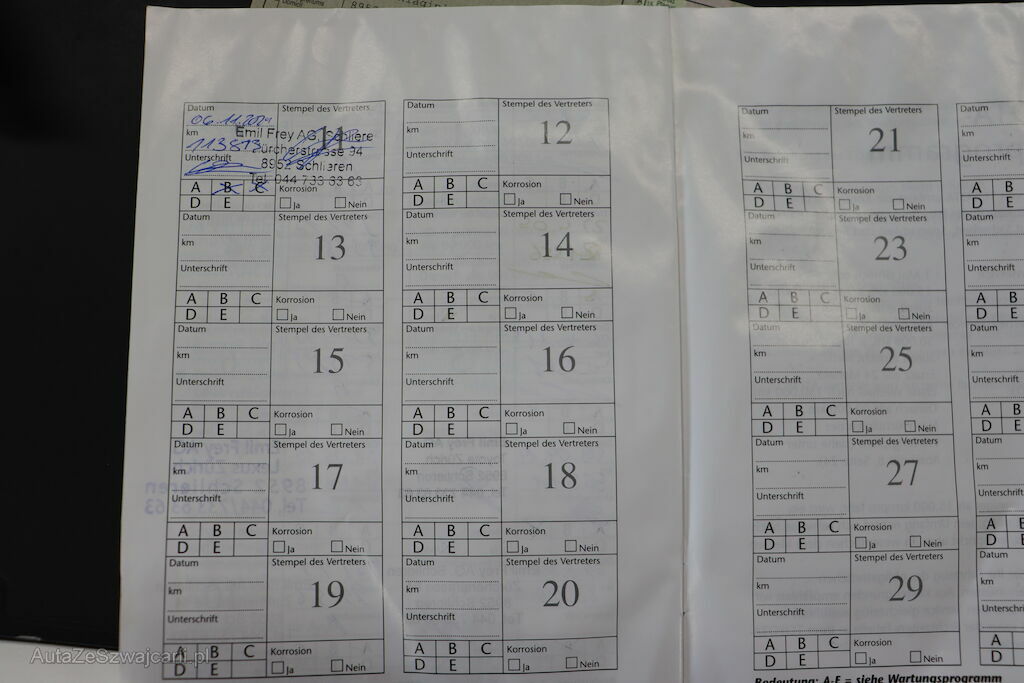 Datum
06.11.2024
Stempel des Vertreters
11
km
113813
Emil Frey AG, Schliere
Zürcherstrasse 94
Unterschrift
8952 Schlieren
Tel. 044 733 63 63
A B C
Korrosion
D E
Ja Nein
Datum
Stempel des Vertreters
12
km
Unterschrift
A B C
Korrosion
D E
Ja Nein
Datum
Stempel des Vertreters
13
km
Unterschrift
A B C
Korrosion
D E
Ja Nein
Datum
Stempel des Vertreters
14
km
Unterschrift
A B C
Korrosion
D E
Ja Nein
Datum
Stempel des Vertreters
15
km
Unterschrift
A B C
Korrosion
D E
Ja Nein
Datum
Stempel des Vertreters
16
km
Unterschrift
A B C
Korrosion
D E
Ja Nein
Datum
Stempel des Vertreters
17
km
Unterschrift
A B C
Korrosion
D E
Ja Nein
Datum
Stempel des Vertreters
18
km
Unterschrift
A B C
Korrosion
D E
Ja Nein
Datum
Stempel des Vertreters
19
km
Unterschrift
A B C
Korrosion
D E
Ja Nein
Datum
Stempel des Vertreters
20
km
Unterschrift
A B C
Korrosion
D E
Ja Nein
Datum
Stempel des Vertreters
21
km
Unterschrift
A B C
Korrosion
D E
Ja Nein
Datum
km
Unterschrift
A B
D E
Datum
Stempel des Vertreters
23
km
Unterschrift
A B C
Korrosion
D E
Ja Nein
Datum
km
Unterschrift
A B
D E
Datum
Stempel des Vertreters
25
km
Unterschrift
A B C
Korrosion
D E
Ja Nein
Datum
km
Unterschrift
A B
D E
Datum
Stempel des Vertreters
27
km
Unterschrift
A B C
Korrosion
D E
Ja Nein
Datum
km
A B
D E
Datum
Stempel des Vertreters
29
km
Unterschrift
A B C
Korrosion
D E
Ja Nein
Datum
km
A
D
Bedeutung: A-E = siehe Wartungsprogramm
AutaZeSzwajcarii.pl